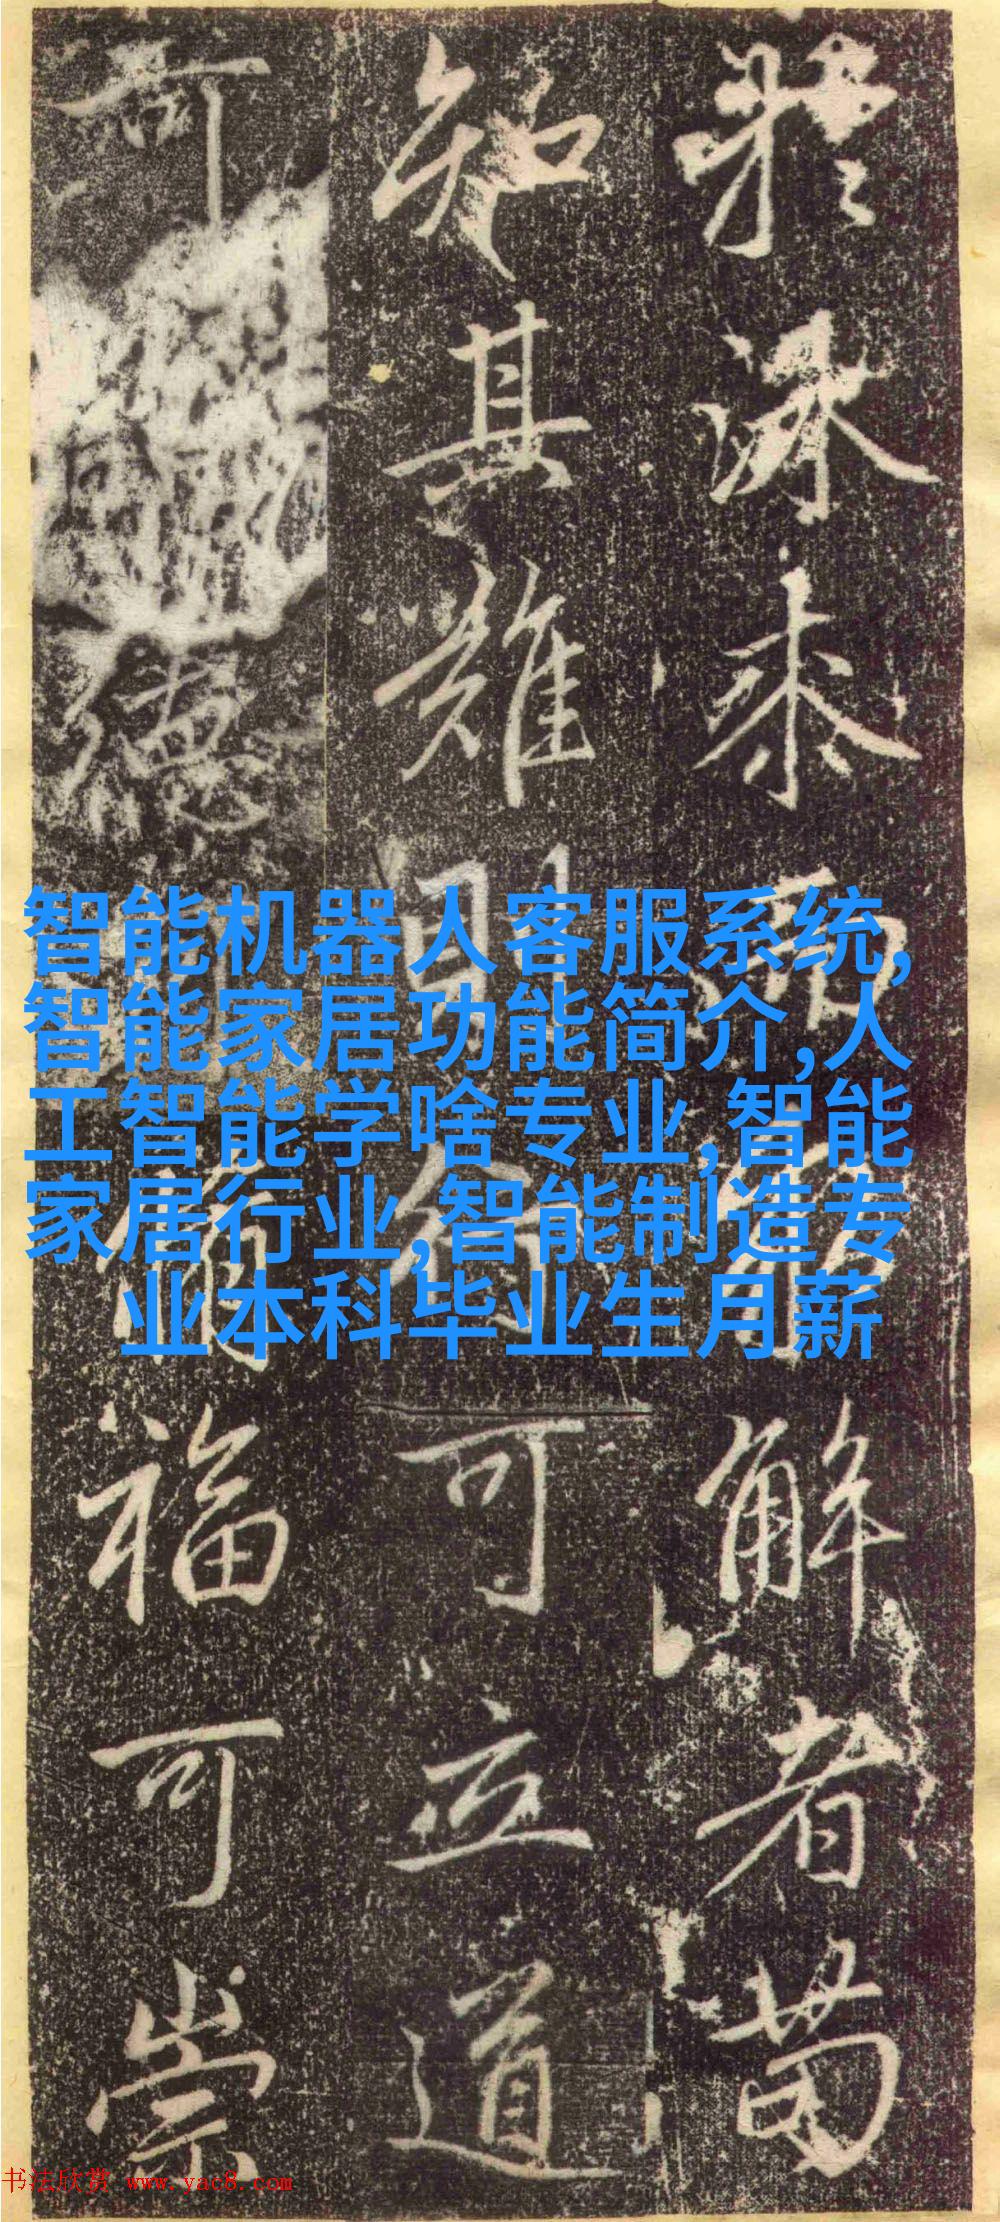 於 深 而 解 者
知 其 難 則 可 立 道
可 德 備 福 可 崇
智能机器人客服系统,
智能家居功能简介,人
工智能学啥专业,智能
家居行业,智能制造专
业本科毕业生月薪
书法欣赏 www.yac8.com